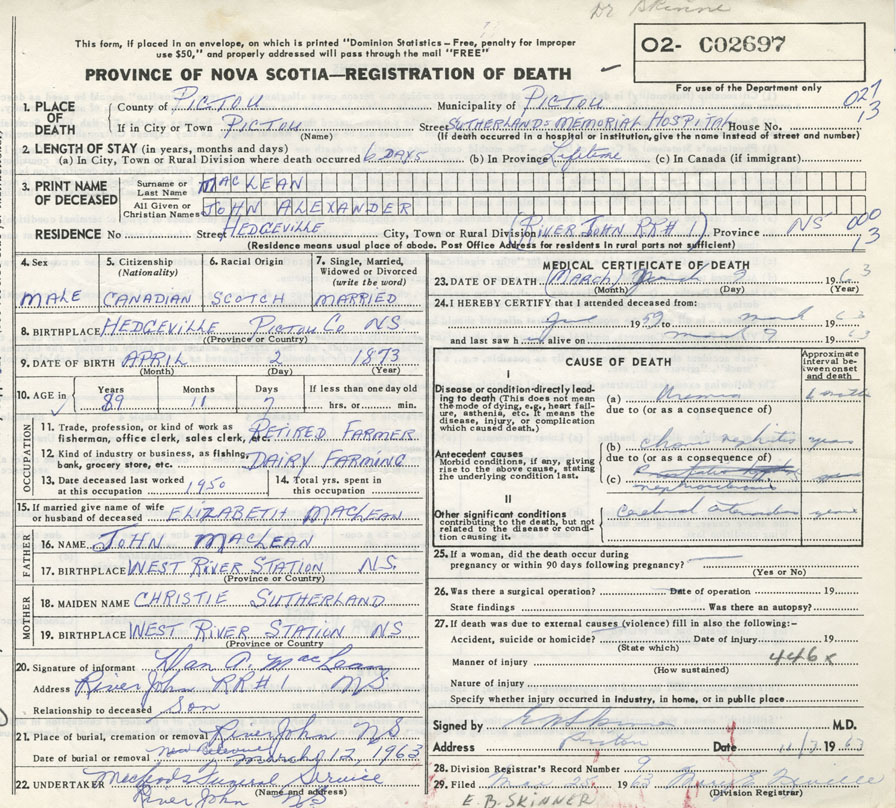 Dr Skinne
This form, if placed in an envelope, on which is printed "Dominion Statistics - Free, penalty for improper
use $50," and properly addressed will pass through the mail "FREE"
O2- C02697
PROVINCE OF NOVA SCOTIA—REGISTRATION OF DEATH
For use of the Department only
1. PLACE OF DEATH
County of PICTOU Municipality of PICTOU 027
If in City or Town PICTOU Street SUTHERLANDS MEMORIAL HOSPITAL House No. 13
(Name) (If death occurred in a hospital or institution, give the name instead of street and number)
2. LENGTH OF STAY (in years, months and days)
(a) In City, Town or Rural Division where death occurred 6 DAYS (b) In Province Lifetime (c) In Canada (if immigrant)
3. PRINT NAME OF DECEASED
Surname or Last Name MACLEAN
All Given or Christian Names JOHN ALEXANDER
RESIDENCE No Street HEDGEVILLE City, Town or Rural Division (RIVER JOHN RR#1) Province NS 000
13
(Residence means usual place of abode. Post Office Address for residents in rural parts not sufficient)
4. Sex MALE
5. Citizenship (Nationality) CANADIAN
6. Racial Origin SCOTCH
7. Single, Married, Widowed or Divorced (write the word) MARRIED
8. BIRTHPLACE HEDGEVILLE PICTOU Co NS
(Province or Country)
9. DATE OF BIRTH APRIL 2 1873
(Month) (Day) (Year)
10. AGE in Years 89 Months 11 Days 7 If less than one day old hrs. or min.
OCCUPATION
11. Trade, profession, or kind of work as fisherman, office clerk, sales clerk, etc. RETIRED FARMER
12. Kind of industry or business, as fishing, bank, grocery store, etc. DAIRY FARMING
13. Date deceased last worked at this occupation 1950
14. Total yrs. spent in this occupation
15. If married give name of wife or husband of deceased ELIZABETH MACLEAN
FATHER
16. NAME JOHN MACLEAN
17. BIRTHPLACE WEST RIVER STATION N.S.
(Province or Country)
MOTHER
18. MAIDEN NAME CHRISTIE SUTHERLAND
19. BIRTHPLACE WEST RIVER STATION NS
(Province or Country)
20. Signature of informant Dan A. MacLean
Address River John RR#1 NS
Relationship to deceased Son
21. Place of burial, cremation or removal River John NS
Date of burial or removal March 12, 1963
22. UNDERTAKER Funeral Service
(Name and address)
River John NS
MEDICAL CERTIFICATE OF DEATH
23. DATE OF DEATH (MARCH) 9 1963
(Month) (Day) (Year)
24. I HEREBY CERTIFY that I attended deceased from:
19 to March 63
and last saw h alive on March 9 1963
CAUSE OF DEATH
Approximate interval between onset and death
I
Disease or condition directly leading to death (This does not mean the mode of dying, e.g., heart failure, asthenia, etc. It means the disease, injury, or complication which caused death.)
(a) Uremia
due to (or as a consequence of)
Antecedent causes
Morbid conditions, if any, giving rise to the above cause, stating the underlying condition last.
(b) nephritis years
due to (or as a consequence of)
(c)
II
Other significant conditions contributing to the death, but not related to the disease or condition causing it.
Cerebral years
25. If a woman, did the death occur during pregnancy or within 90 days following pregnancy?
(Yes or No)
26. Was there a surgical operation? Date of operation 19
State findings Was there an autopsy?
27. If death was due to external causes (violence) fill in also the following:-
Accident, suicide or homicide? Date of injury 19
(State which)
Manner of injury 446x
(How sustained)
Nature of injury
Specify whether injury occurred in industry, in home, or in public place
Signed by E B Skinner M.D.
Address Pictou Date 11/3 1963
28. Division Registrar's Record Number 9
29. Filed 1963
(Division Registrar)
E. B. SKINNER